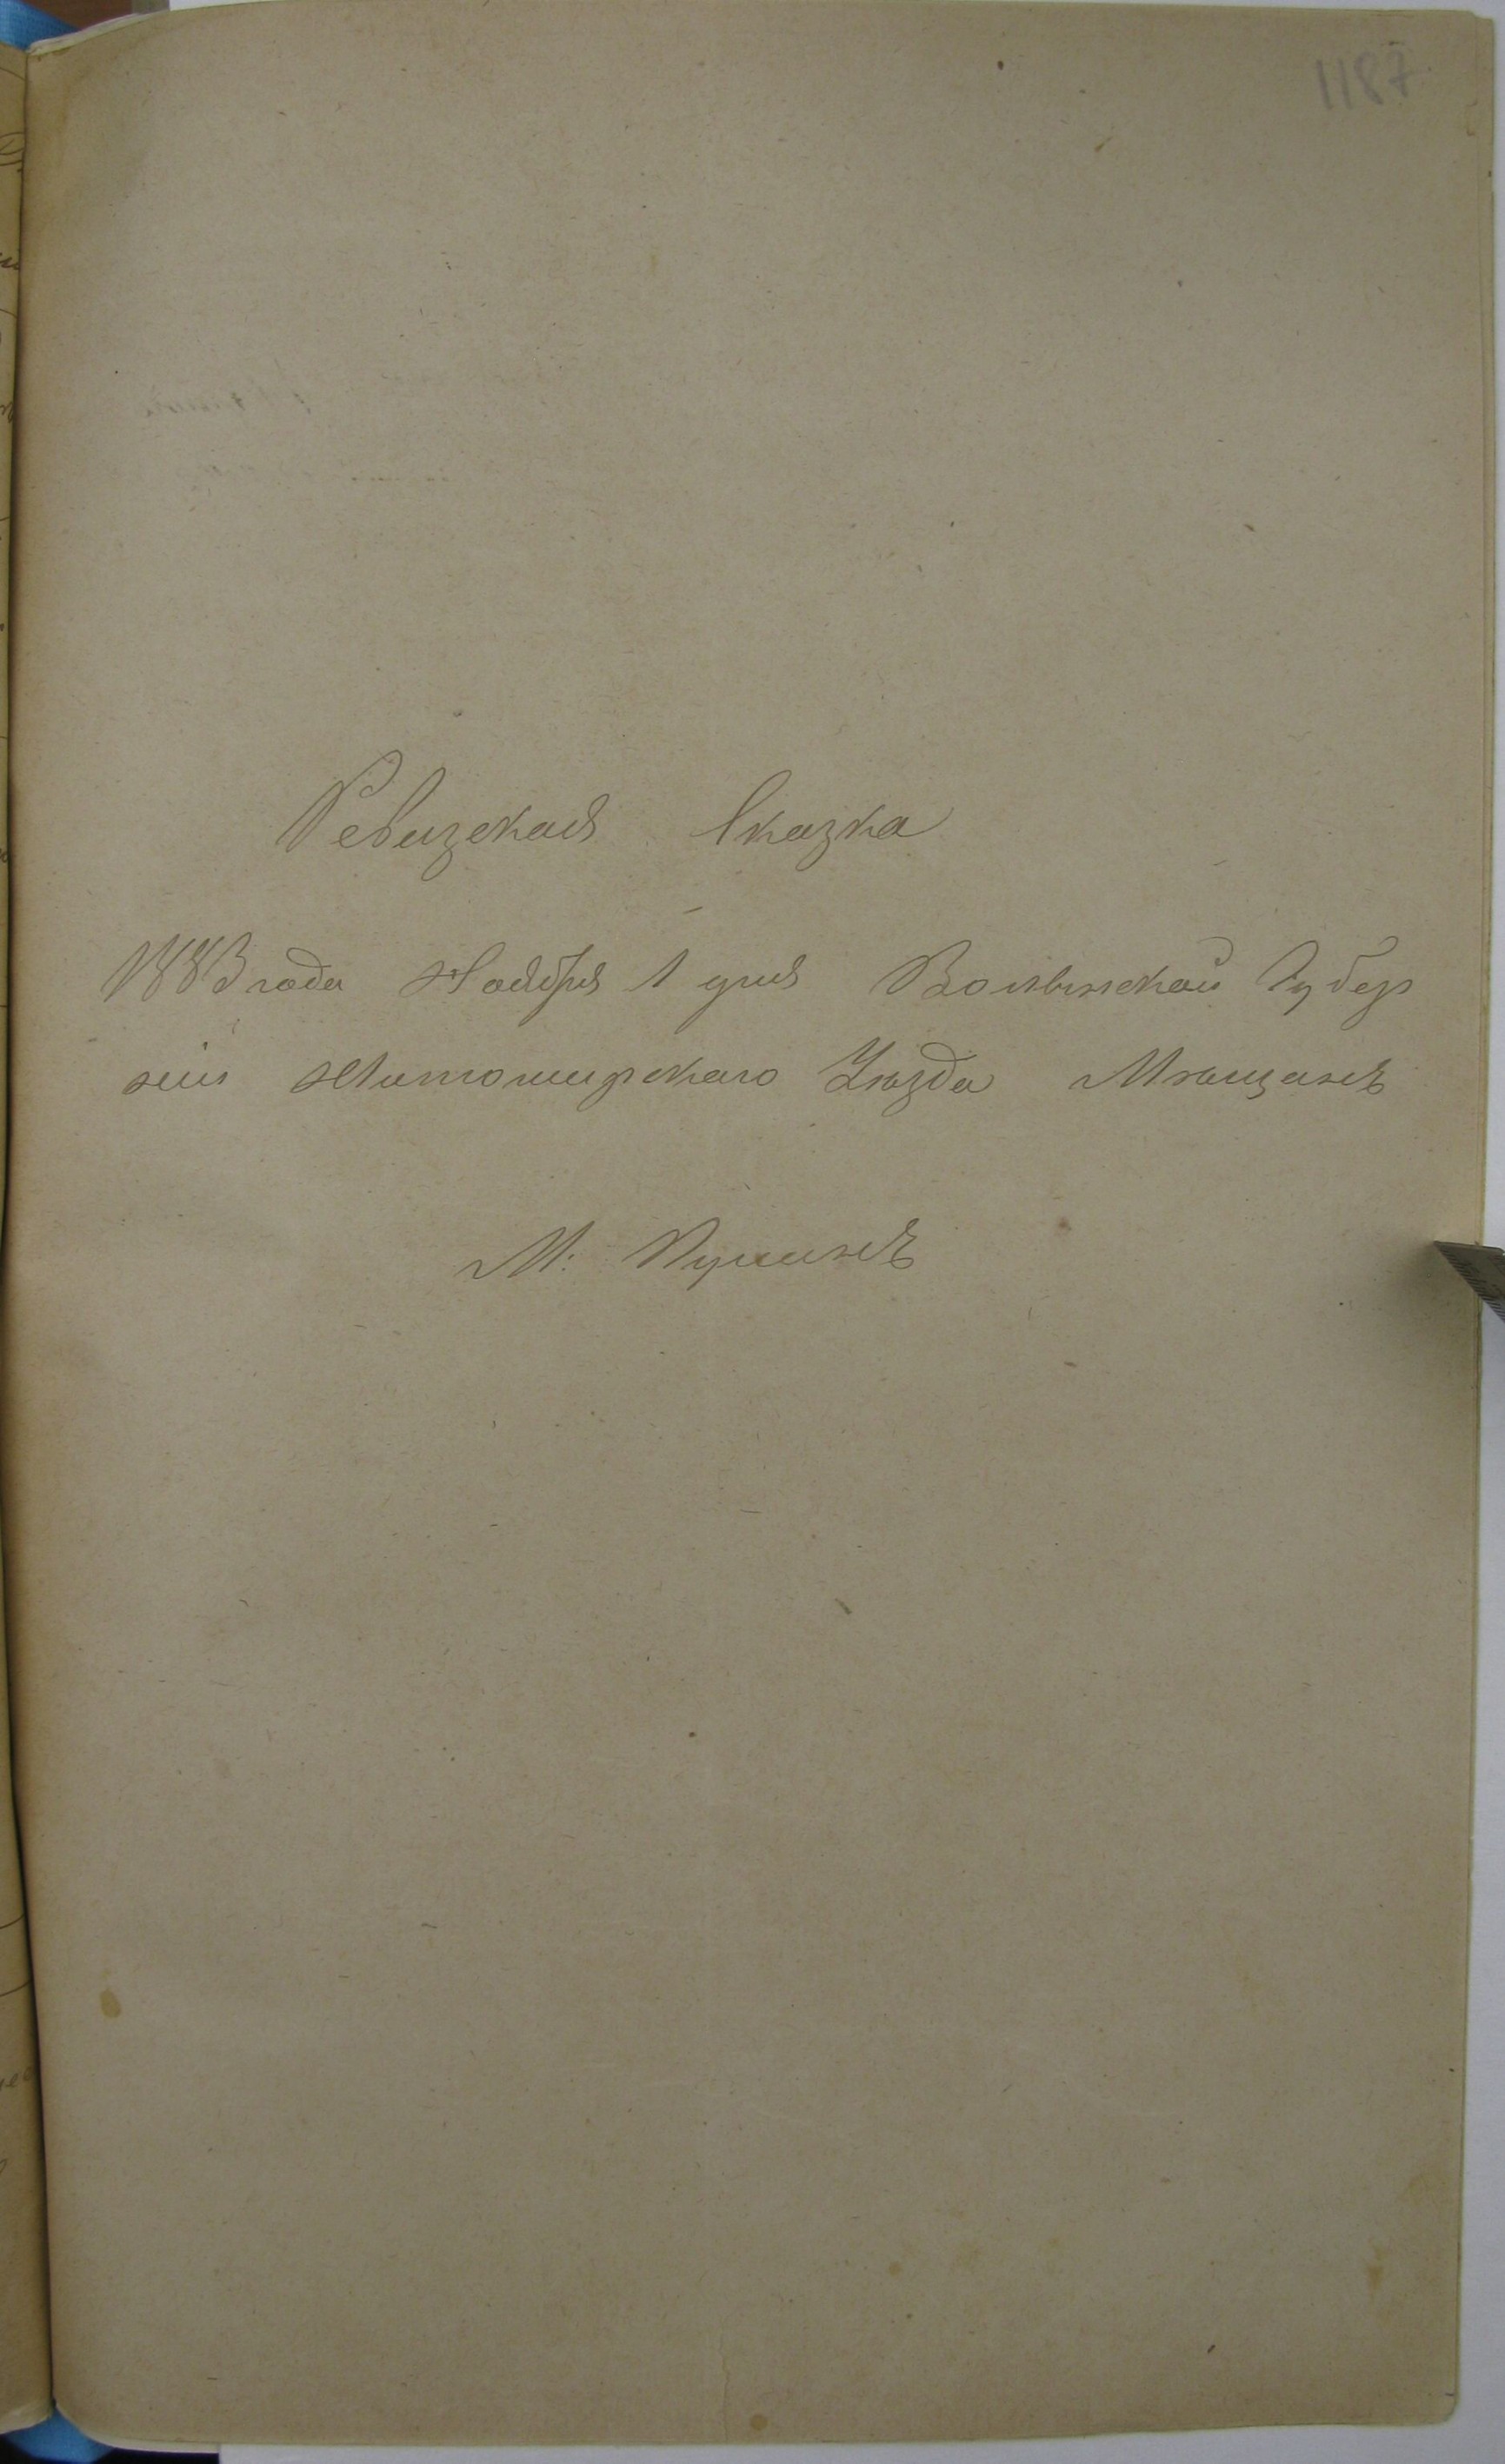 1187
Ревизская Сказка
1883 года Ноября 1 дня Волынской Губер
нiи Житомирскаго Уѣзда Мѣщанъ
М: Пулинъ